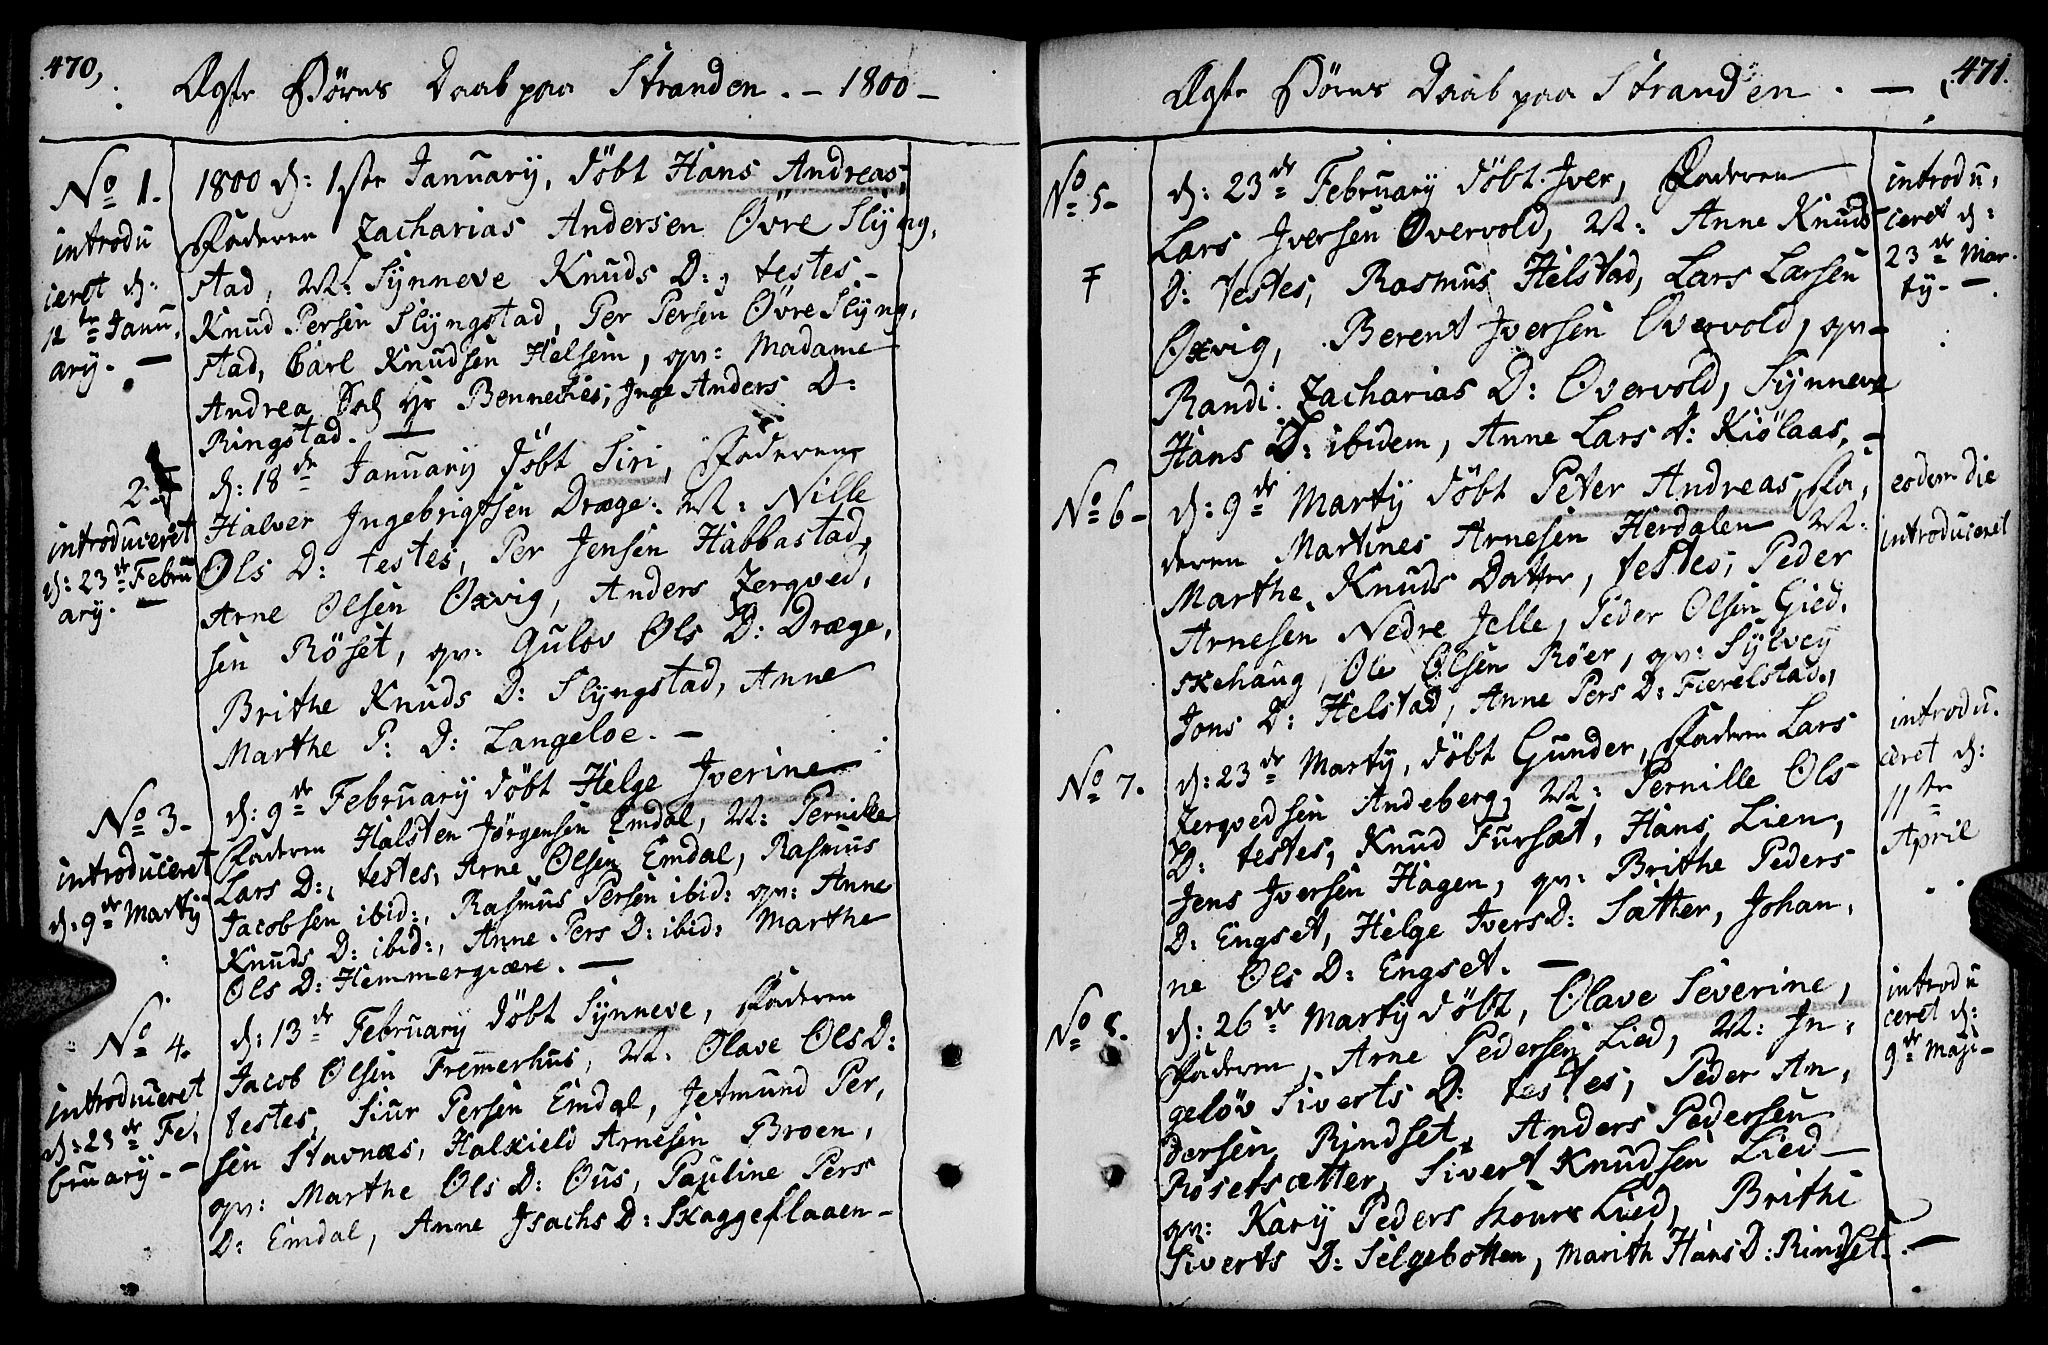 470,
Ægte Börns Daab paa Stranden. – 1800 –
No 1.
introdu
ceret d:
12te Janu,
ary. —
1800 d: 1ste January, döbt Hans Andreas,
Faderen Zacharias Andersen Övre Slÿng,
stad, M: Sÿnneve Knuds D:, testes –
Knud Persen Slÿngstad, Per Persen Övre Slÿng,
stad, Carl Knudsen Helsem, qv: Madame
Andrea Hr Bennechies, Inge Anders D:
Ringstad. —
2
introduceret
d: 23de Febru
ary. —
d: 18de January döbt Siri, Faderen
Halver Ingebrigtsen Dræge. M: Nille
Ols D: testes, Per Jensen Habbastad,
Arne Olsen Oxvig, Anders Zerqved,
sen Röset, qv: Gulov Ols D: Dræge,
Brithe Knuds D: Slÿngstad, Anne
Marthe P: D: Langeloe. —
No 3 –
introduceret
d. 9de Martÿ
d: 9de Februarÿ döbt Helge Iverine
Faderen Halsten Jörgensen Emdal, M: Pernille
Lars D:, testes, Arne Olsen Emdal, Rasmus
Jacobsen ibid:, Rasmus Persen ibid: qv: Anne
Knuds D: ibid:, Anne Pers D: ibid: Marthe
Ols D: Hemmergiære. —
No 4.
introduceret
d: 23de Fe,
bruary. –
d: 13de February döbt Sÿnneve, Faderen
Jacob Olsen Fremerhus, M. Olave Ols D:
testes, Siur Persen Emdal, Jetmund Per,
sen Stavnæs, Halkield Arnesen Broen,
qv: Marthe Ols D: Ous, Pauline Pers
D: Emdal, Anne Isachs D: Skaggeflaaen –
Ægte Börns Daab paa Stranden. — 471.
No 5 –
d: 23de Februarÿ döbt Iver, Faderen
Lars Iversen Overvold, M: Anne Knuds
D: testes, Rasmus Helstad, Lars Larsen
Oxvig, Berent Iversen Overvold, qv –
Randi Zacharias D: Overvold, Sÿnneve
Hans D: ibidem, Anne Lars D: Kiölaas, –
introdu,
ceret d:
23de Mar.
tÿ. —
No 6 –
d: 9de Martÿ döbt Peter Andreas, Fa,
deren Martines Arnesen Herdalen M:
Marthe Knuds Datter, testes, Peder
Arnesen Nedre Jelle, Peder Olsen Gied,
skehaug, Ole Olsen Röer, qv: Sÿlveÿ
Jons D: Helstad, Anne Pers D: Fierelstad.,
eodem die
introduceret
No 7.
d: 23de Martÿ, döbt Gunder, Faderen Lars
Zerqvedsen Andeberg, M: Pernille Ols
D: testes, Knud Fursæt, Hans Lien,
Jens Iversen Hagen, qv: Brithe Peders
D: Engset, Helge Ivers D: Sætter, Johan,
ne Ols D: Engset. —
introdu.
ceret d:
11te
April
No 8.
d: 26de Martÿ döbt, Olave Severine,
Faderen, Arne Pedersen Lied, M: In,
gelöv Siverts D: testes, Peder An,
dersen Rindset, Anders Pedersen
Rosetsætter, Sivert Knudsen Lied –
qv: Karÿ Peders Lied, Brithe
Siverts D: Selgebotten, Marith Hans D: Rindset. —
introdu
ceret d:
9de Maji –